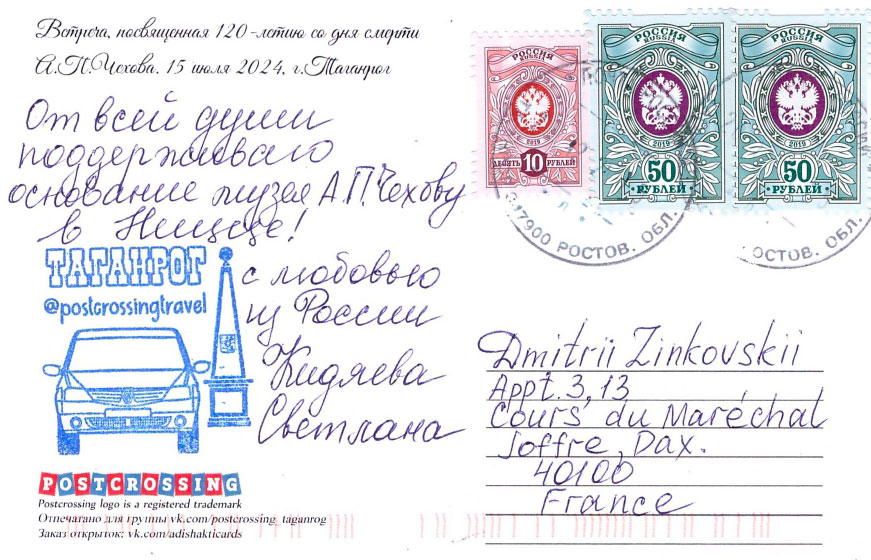 Встреча, посвященная 120-летию со дня смерти
А.П.Чехова. 15 июля 2024, г.Таганрог
От всей души
поддерживаю
основание музея А.П.Чехову
в Ницце!
ТАГАНРОГ
@postcrossingtravel
с любовью
из России
Кидяева
Светлана
POSTCROSSING
Postcrossing logo is a registered trademark
Отпечатано для группы vk.com/postcrossing_taganrog
Заказ открыток: vk.com/adishakticards
РОССИЯ
RUSSIA
2019
ДЕСЯТЬ 10 РУБЛЕЙ
РОССИЯ
RUSSIA
2019
50
РУБЛЕЙ
РОССИЯ
RUSSIA
2019
50
РУБЛЕЙ
347900 РОСТОВ. ОБЛ.
РОСТОВ. ОБЛ.
Dmitrii Zinkovskii
Appt. 3, 13
Cours du Maréchal
Joffre, Dax.
40100
France